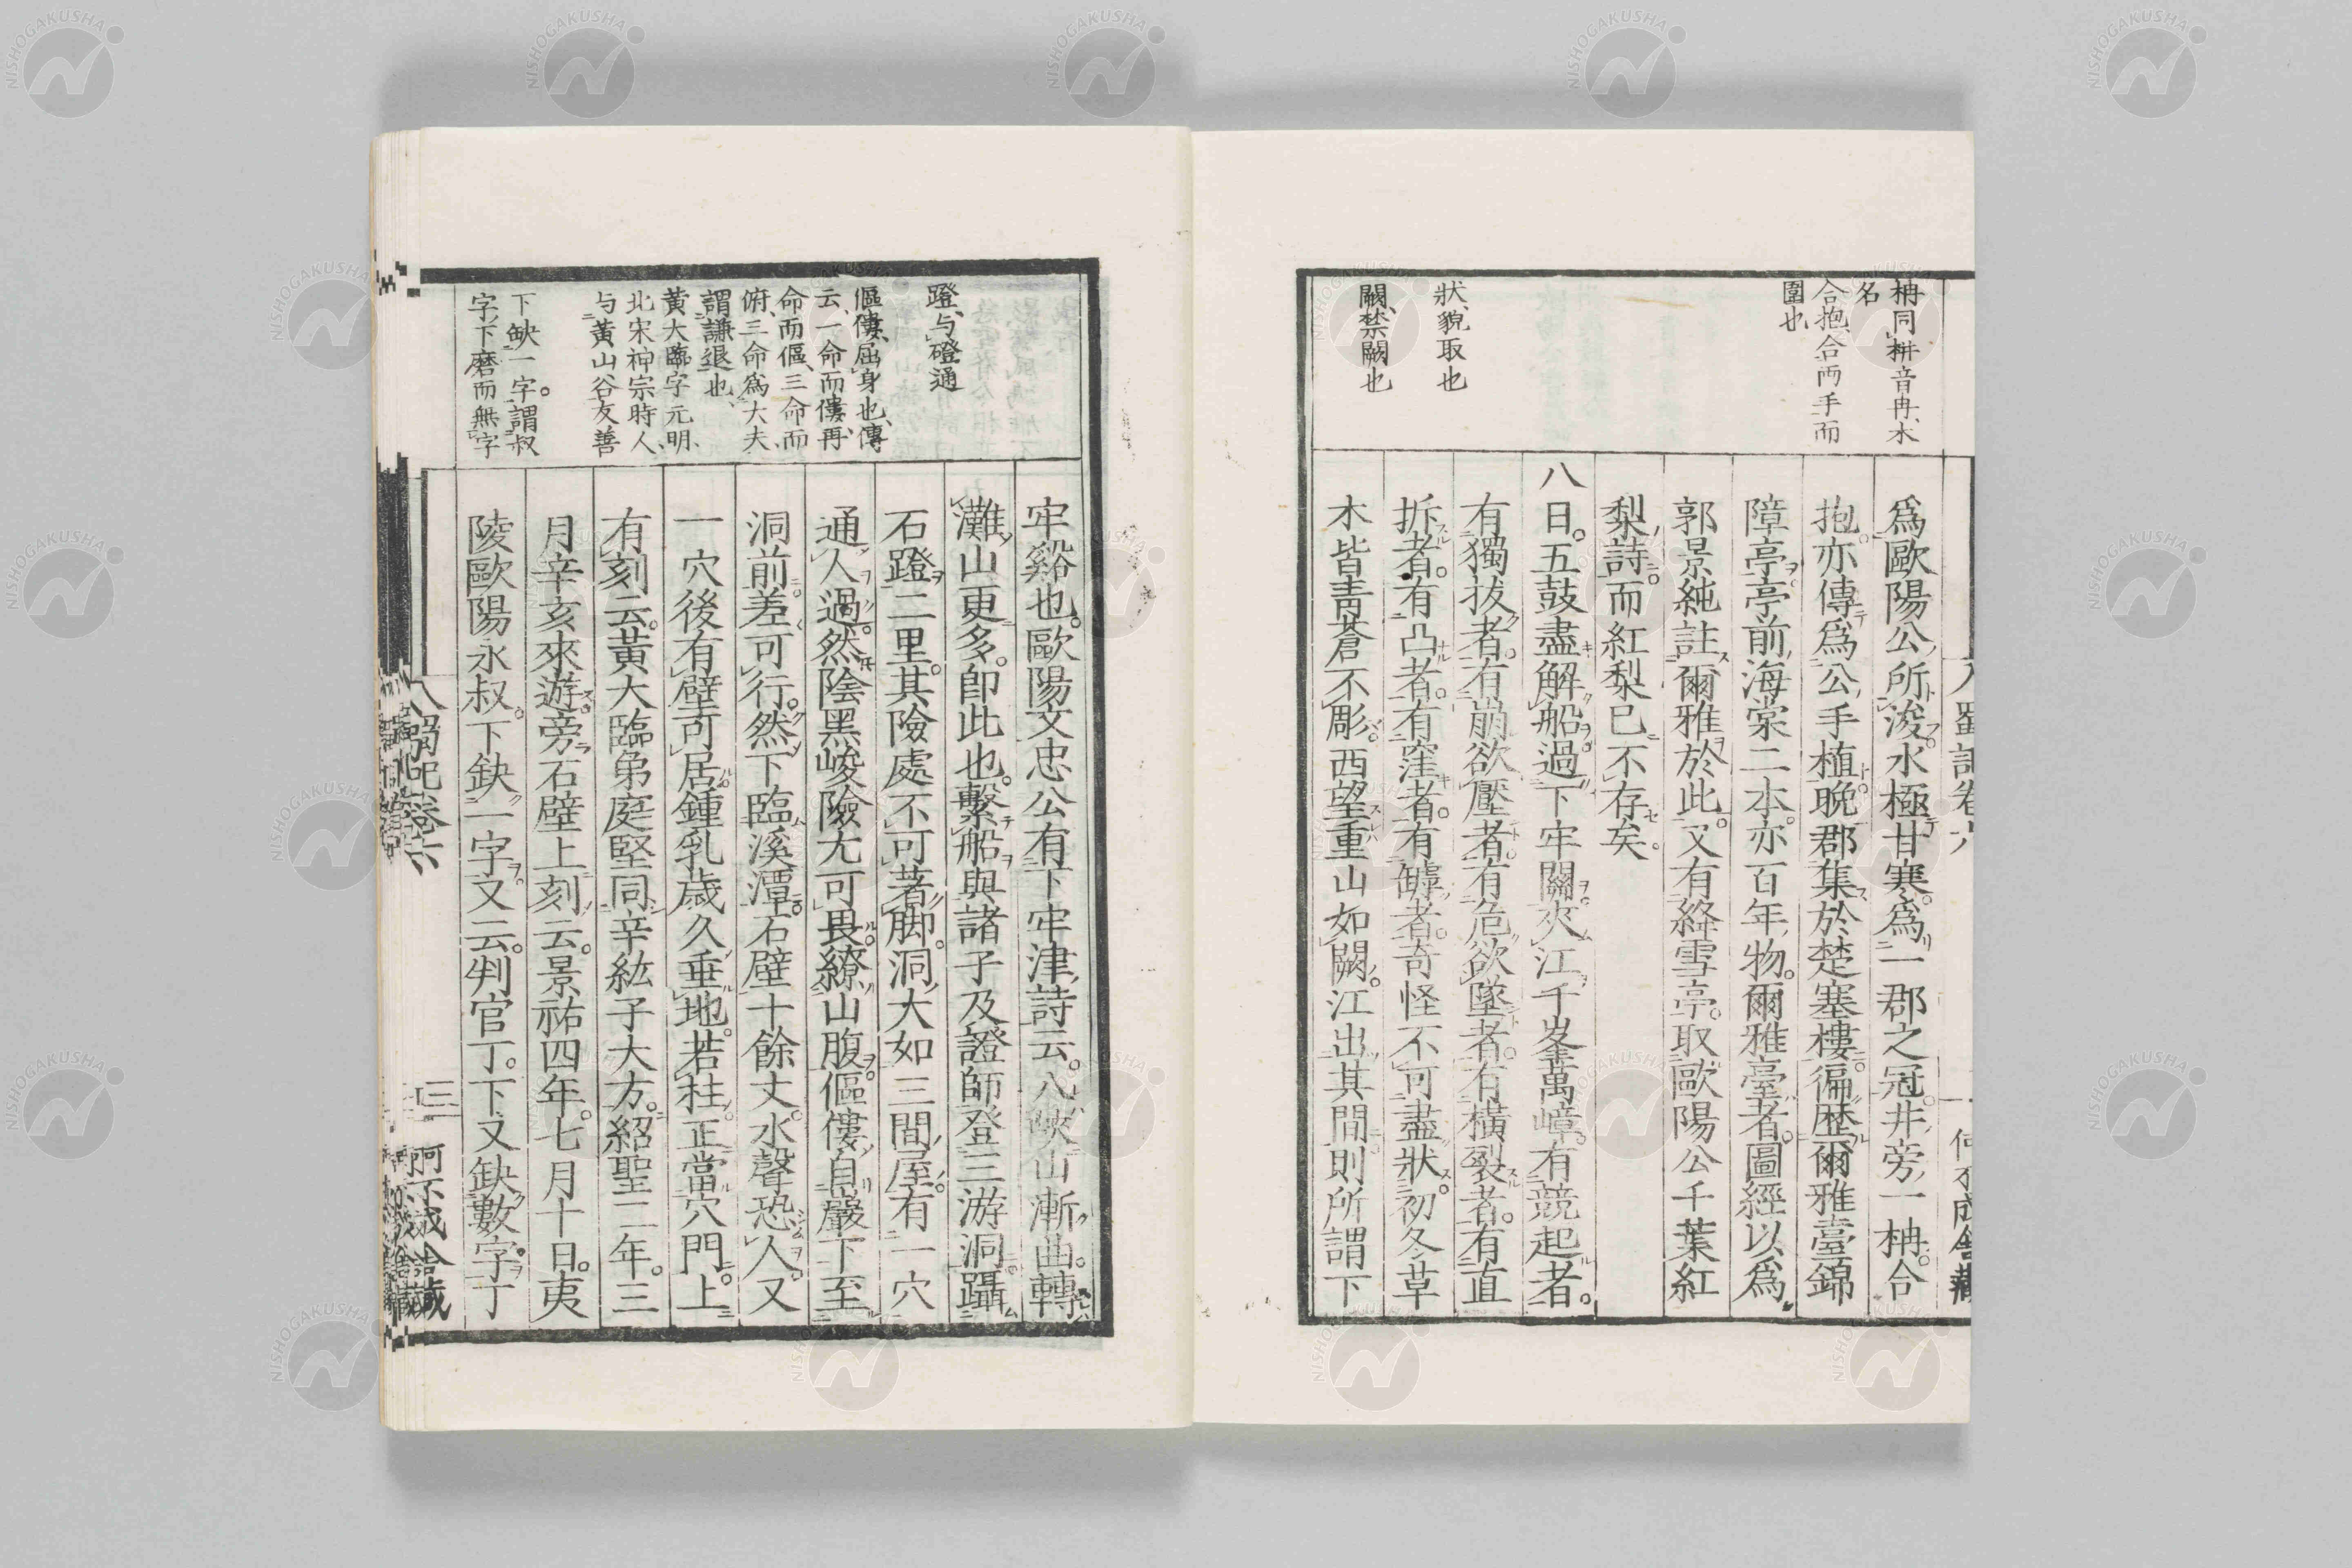 入蜀記卷六
一
何不成舍藏
柟同耕音冉、木
名
合抱、合両手而
圍也
狀、貌取也
闕、禁闕也
爲歐陽公所浚。水極甘寒。爲一郡之冠。井旁一柟合
抱。亦傳爲公手植。晩郡集於楚塞樓。徧歴爾雅臺錦
障亭。亭前海棠二本。亦百年物。爾雅臺者。圖經以爲
郭景純註爾雅於此。又有絳雪亭。取歐陽公千葉紅
梨詩。而紅梨已不存矣。
八日。五鼓盡解船。過下牢關。夾江千峯萬嶂。有競起者。
有獨拔者。有崩欲壓者。有危欲墜者。有横裂者。有直
拆者。有凸者。有窪者。有罅者。奇怪不可盡狀。初冬草
木皆青蒼不彫。西望重山如闕。江出其間。則所謂下
蹬、与磴通
傴僂、屈身也、傳
云、一命而僂、再
命而傴、三命而
俯、三命爲大夫、
謂謙退也、
黄大臨字元明、
北宋神宗時人、
与黄山谷友善
下缺一字。謂叔
字下磨而無字
牢谿也。歐陽文忠公有下牢津詩云。入峽山漸曲。轉
灘山更多。即此也。繫船與諸子及證師登三游洞。躡
石蹬二里。其險處不可著脚。洞大如三間屋。有一穴
通人過。然陰黑峻險尤可畏。繚山腹。傴僂自巖下至
洞前。差可行。然下臨溪潭。石壁十餘丈。水聲恐人。又
一穴後有壁可居。鍾乳歳久垂地。若柱。正當穴門。上
有刻云。黄大臨弟庭堅同辛紘子大方。紹聖二年。三
月辛亥來遊。旁石壁上刻云。景祐四年。七月十日。夷
陵歐陽永叔。下缺一字。又云。判官丁。下又缺數字。丁
入蜀記卷六
三
何不成舍藏